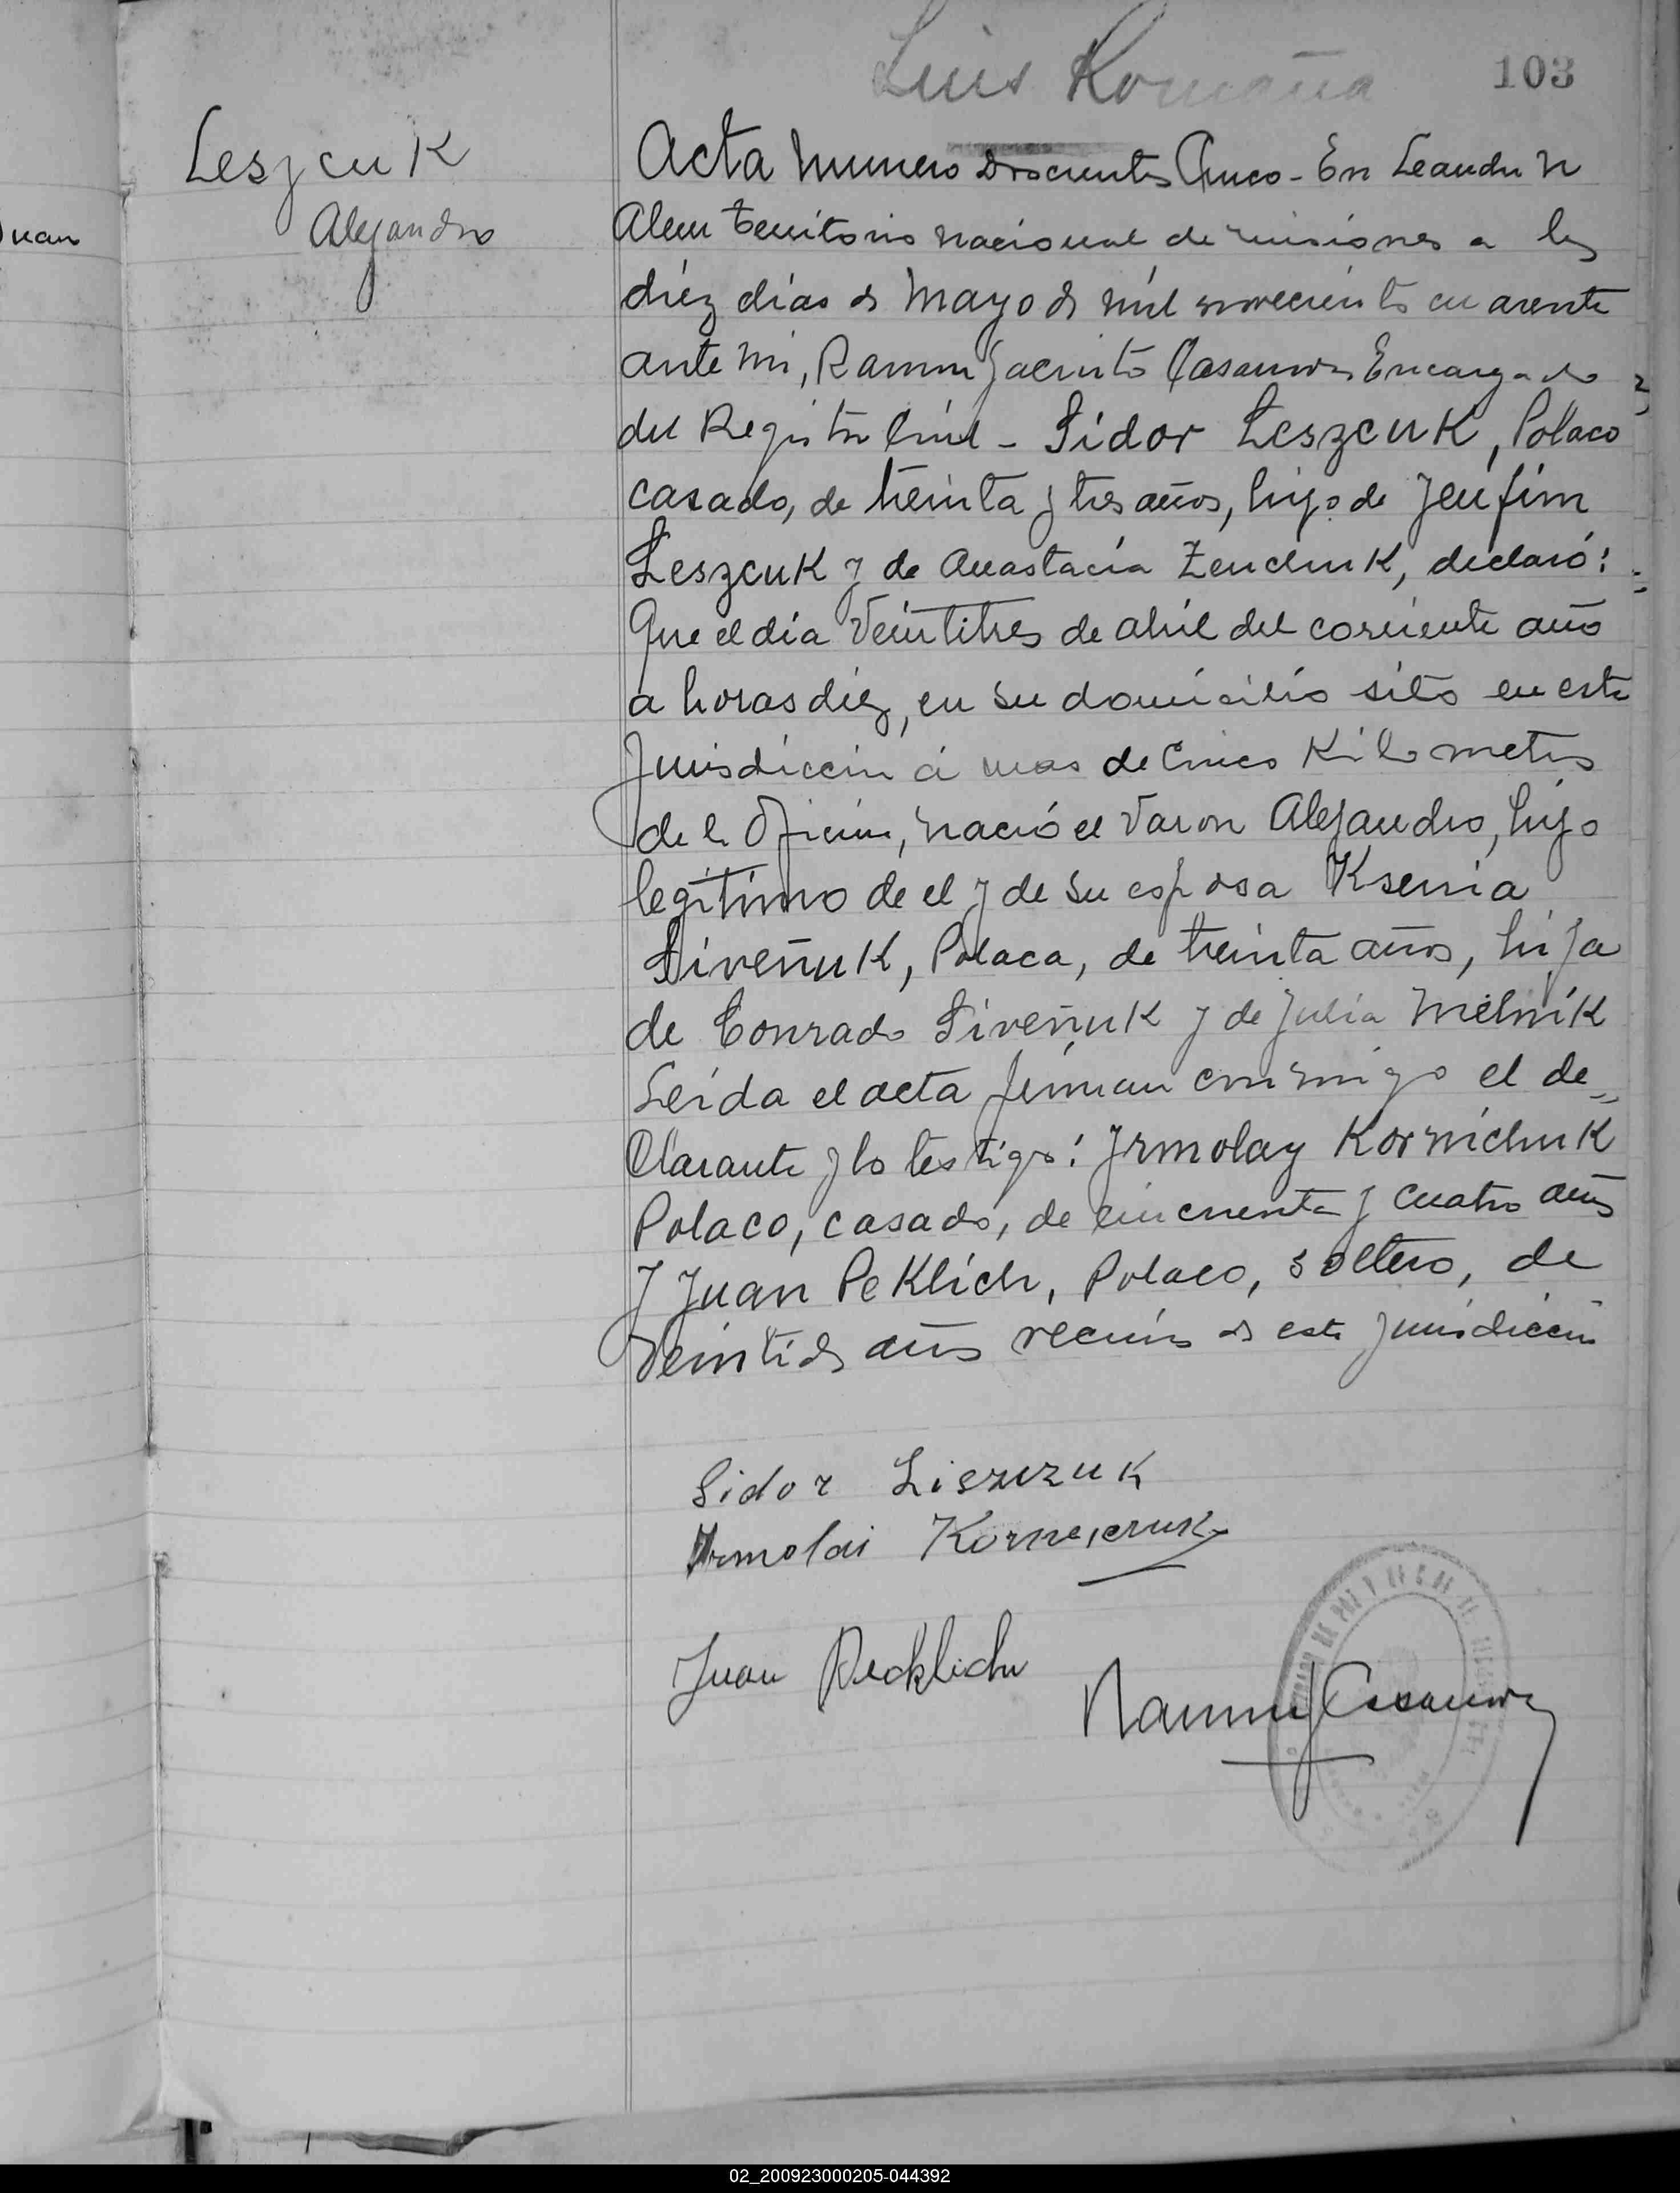 Luis Romaña
103
Leszcuk
Alejandro
Juan
Acta numero Doscientos Cinco - En Leandro N
Alem territorio nacional de misiones a los
diéz días de Mayo de mil novecientos cuarenta
ante mi, Ramon Jacinto Casanova Encargado
del Registro Civil - Sidor Leszcuk, Polaco
casado, de treinta y tres años, hijo de Jeufim
Leszcuk y de Anastacia Zenchuk, declaró:
Que el día Veintitres de abril del corriente año
a horas diéz, en su domicilio sito en esta
Jurisdiccin á mas de Cinco Kilometros
de la Oficina, nació el Varon Alejandro, hijo
legítimo de el y de su esposa Ksenia
Sireñuk, Polaca, de treinta años, hija
de Conrado Sireñuk y de Julia Melnik
Leida el acta firman conmigo el de=
Clarante y lo testigos: Jrmolay Kornichuk
Polaco, casado, de cincuenta y cuatro años
y Juan PeKlich, Polaco, soltero, de
Veintidos años vecinos de esta jurisdiccin
Sidor Liszczuk
Irmolai Kornejczuk
Juan Pecklich
Ramon J Casanova
02_200923000205-044392